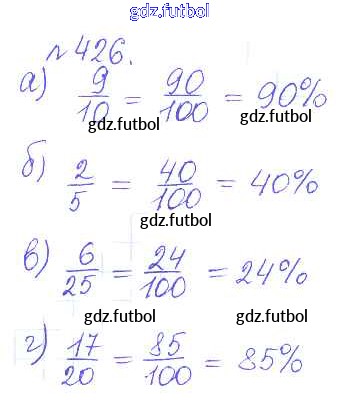 gdz.futbol
№ 426.
а) 9/10 = 90/100 = 90%
gdz.futbol gdz.futbol
б) 2/5 = 40/100 = 40%
gdz.futbol
в) 6/25 = 24/100 = 24%
gdz.futbol gdz.futbol
г) 17/20 = 85/100 = 85%